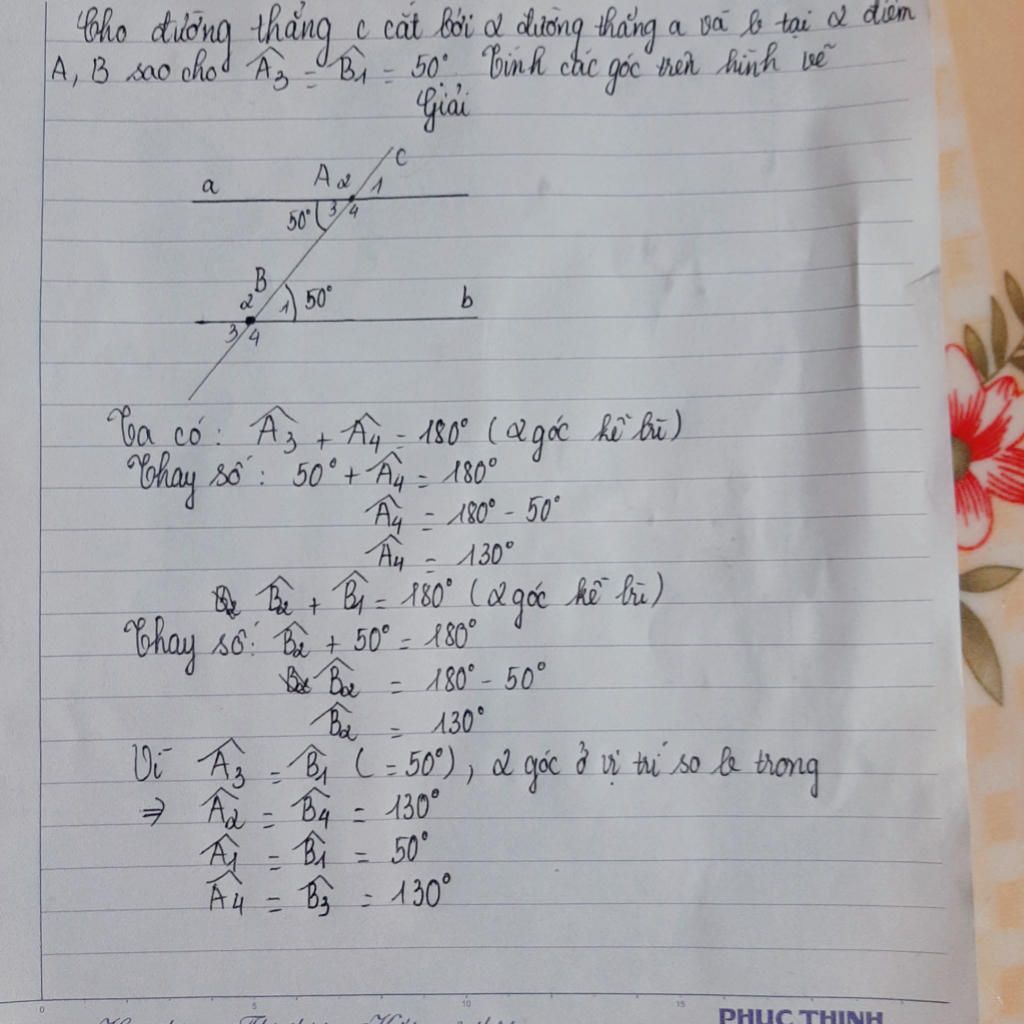 Cho đường thẳng c cắt bởi 2 đường thẳng a và b tại 2 điểm
A, B sao cho Â3 = B̂1 = 50° Tính các góc trên hình vẽ
Giải
c
A 2 1
a
50° 3 4
B
2 1 50° b
3 4
Ta có: Â3 + Â4 = 180° (2 góc kề bù)
Thay số: 50° + Â4 = 180°
Â4 = 180° - 50°
Â4 = 130°
B̂2 + B̂1 = 180° (2 góc kề bù)
Thay số: B̂2 + 50° = 180°
B̂2 = 180° - 50°
B̂2 = 130°
Vì Â3 = B̂1 (= 50°), 2 góc ở vị trí so le trong
⇒ Â2 = B̂4 = 130°
Â1 = B̂1 = 50°
Â4 = B̂3 = 130°
0 5 10 15
PHUC THINH